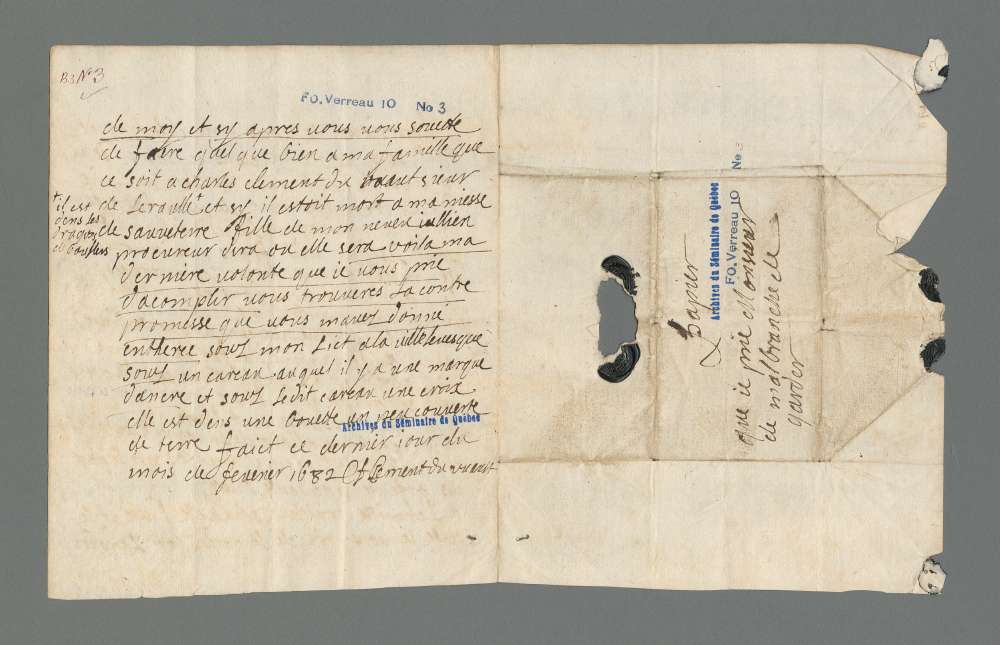 B3 N° 3
FO.Verreau 10 No 3
de moy et sy apres vous vous soucete
de faire quelque bien a ma famille que
ce soit a charles clement du vuaut sieur
de leraulle† et sy il estoit mort a ma niesse
de sauveterre fille de mon neveu iullien
procureur dira ou elle sera voila ma
derniere volonte que ie vous prie
dacomplir vous trouveres la contre
promesse que vous maves donne
entheree soubs mon lict a la villelevesque
soubs un careau auquel il y a une marque
dancre et soubs ledit careau une croix
elle est dens une bouette un peu couverte
de terre faict ce dernier jour du
mois de fevrier 1682 Clement du vuaut
† il est
dens les
dragons
Archives du Séminaire de Québec
papier
que ie prie Monsieur
de malbranche de
garder
Archives du Séminaire de Québec
FO.Verreau 10 No 3